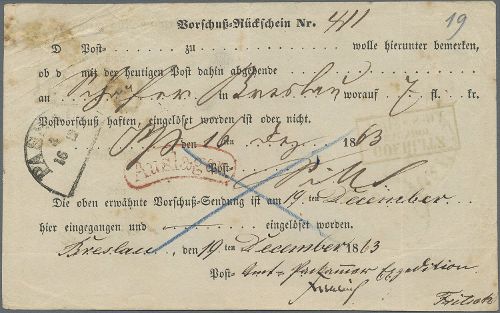 Vorschuß-Rückschein Nr. 411
19
D Post- zu wolle hierunter bemerken,
ob d mit der heutigen Post dahin abgehende
an Schäfer in Breslau worauf 7 fl. kr.
Postvorschuß haften, eingelöset worden ist oder nicht.
den 16 ten Dez. 1863
PASSAU
Auslagen
Post-
Die oben erwähnte Vorschuß-Sendung ist am 19 ten December
hier eingegangen und eingelöset worden.
Breslau, den 19 ten December 1863
Post- Amts-Packkammer Expedition
Fritsch